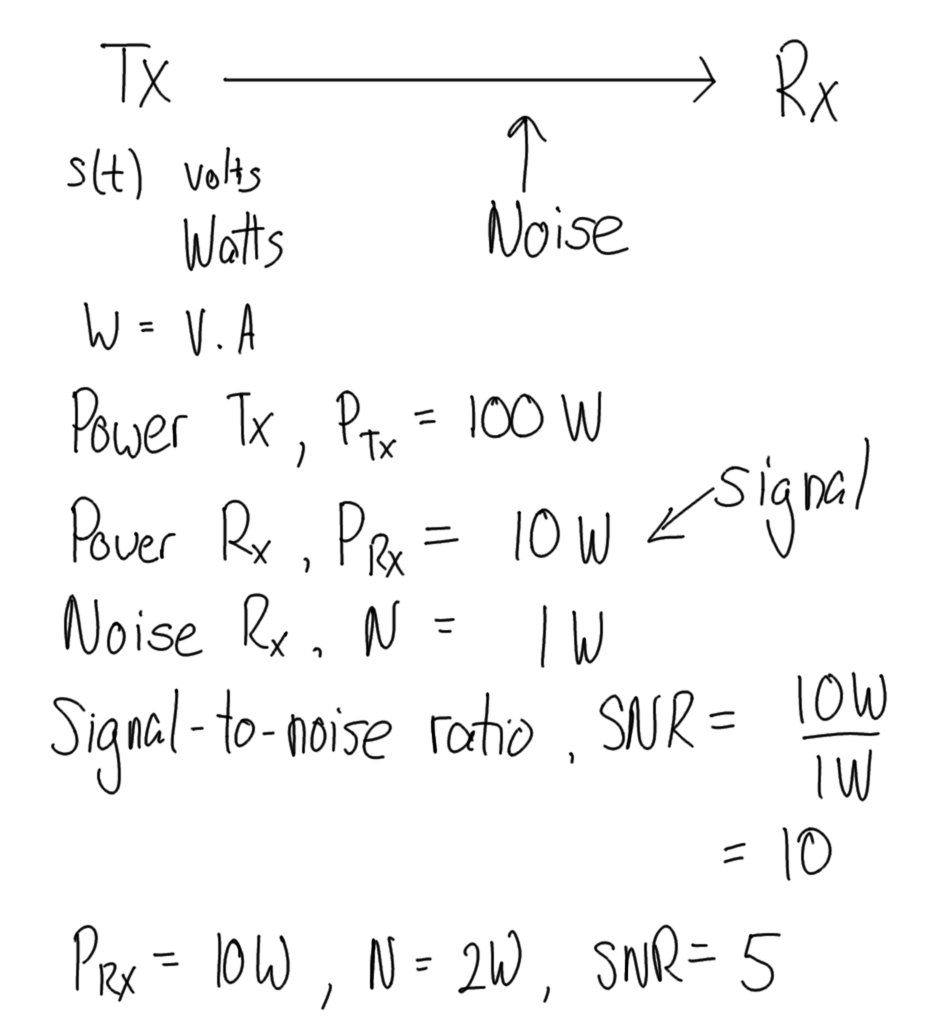 Tx → Rx
s(t) volts
Watts
Noise
W = V.A
Power Tx, P_Tx = 100 W
signal
Power Rx, P_Rx = 10 W
Noise Rx, N = 1 W
Signal-to-noise ratio, SNR = 10W / 1W
= 10
P_Rx = 10W, N = 2W, SNR = 5